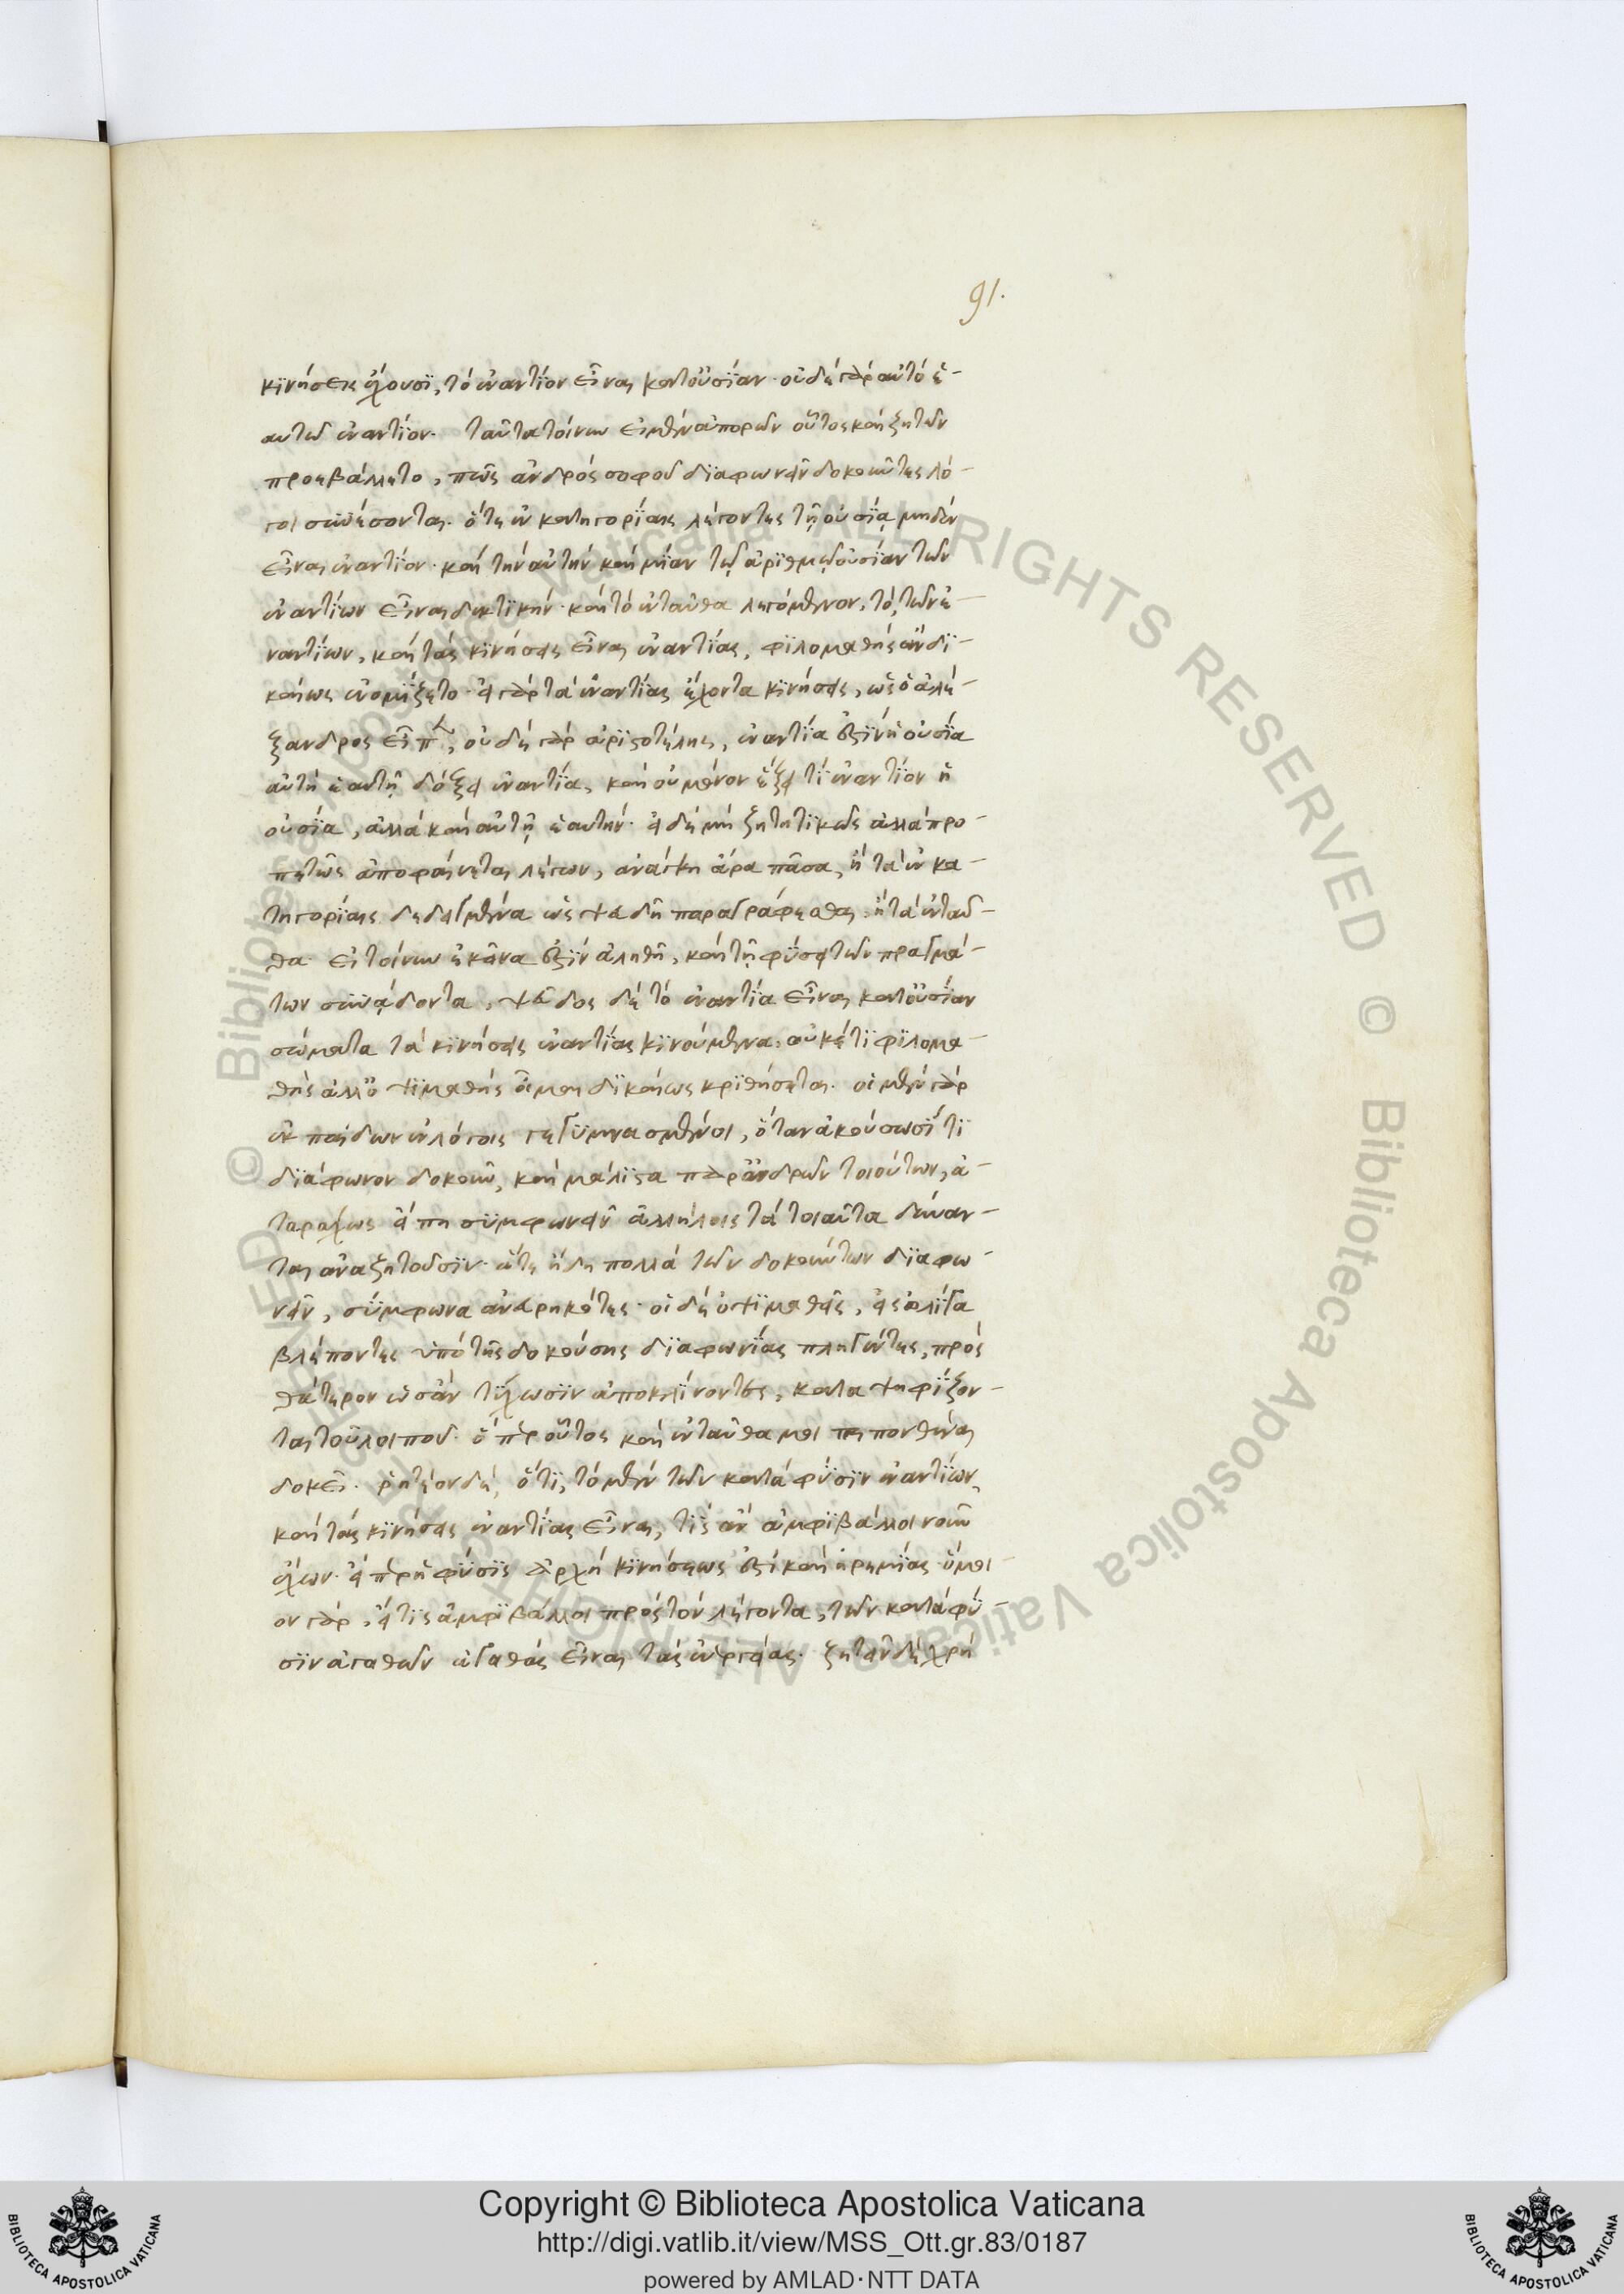 91.
κϊνήσεις ἔχουσϊ, τὸ ἐναντίον εἶναι κατοὐσίαν· οὐδὲ γὰρ αὐτὸ ἑ-
αυτῶ ἐναντίον. ταῦτα τοίνυν εἰ μὲν ἀπορῶν οὗτος καὶ ζητῶν
προεβάλλετο, πῶς ἀνδρὸς σοφοῦ διαφωνεῖν δοκοῦντες λό-
γοι συνέσονται. ὅτε ἐν κατηγορίαις λέγοντες τῆ οὐσία μηδὲν
εἶναι ἐναντίον· καὶ τὴν αὐτὴν καὶ μίαν τῷ ἀριθμῷ οὐσίαν τῶν
ἐναντίων εἶναι δεκτικήν· καὶ τὸ ἐνταῦθα λεγόμενον, τὸ, τῶν ἐ-
ναντίων, καὶ τὰς κινήσεις εἶναι ἐναντίας, φιλομαθὴς ἂν δι-
καίως ἐνομίζετο· εἰ γὰρ τὰ ἐναντίας ἔχοντα κινήσεις, ὡς ὁ ἀλέ-
ξανδρος εἶπ, οὐδὲ γὰρ ἀριστοτέλης, ἐναντία ἐστὶν ἡ οὐσία
αὐτὴ ἑαυτῆ δόξει ἐναντία, καὶ οὐ μόνον ἕξει τὶ ἐναντίον ἡ
οὐσία, ἀλλὰ καὶ αὐτῆ ἑαυτήν· εἰ δὲ μὴ ζητητικῶς ἀλλὰ προ-
πετῶς ἀποφαίνεται λέγων, ἀνάγκη ἄρα πᾶσα, ἢ τὰ ἐν κα-
τηγορίαις δεδειγμένα ὡς ψευδῆ παραγράφεσθαι· ἢ τὰ ἐνταῦ-
θα· εἰ τοίνυν ἐκεῖνα ἐστὶν ἀληθῆ, καὶ τῆ φύσει τῶν πραγμά-
των συνάδοντα, ψεῦδος δὲ τὸ ἐναντία εἶναι κατοὐσίαν
σώματα τὰ κινήσεις ἐναντίας κινούμενα· οὐκέτι φιλομα-
θὴς ἀλλ' ὀψιμαθὴς οἶμαι δικαίως κριθήσεται. οἱ μὲν γὰρ
ἐκ παίδων ἐν λόγοις γεγυμνασμένοι, ὅταν ἀκούσωσί τι
διάφωνον δοκοῦν, καὶ μάλιστα παρ' ἀνδρῶν τοιούτων, ἀ-
ταράχως ὅπη συμφωνεῖν ἀλλήλοις τὰ τοιαῦτα δύναν-
ται ἀναζητοῦσιν· ἅτε ἤδη πολλὰ τῶν δοκούντων διαφω-
νεῖν, σύμφωνα ἀνευρηκότες· οἱ δὲ ὀψιμαθεῖς, εἰς ὀλίγα
βλέποντες ὑπὸ τῆς δοκούσης διαφωνίας πληγέντες, πρὸς
θάτερον ὡς ἂν τύχωσιν ἀποκλίνοντες, καταψηφίζον-
ται τοῦ λοιποῦ· ὅπερ οὗτος καὶ ἐνταῦθα μοι πεπονθέναι
δοκεῖ. ῥητέον δὲ, ὅτι, τὸ μὲν τῶν κατὰ φύσιν ἐναντίων,
καὶ τὰς κινήσεις ἐναντίας εἶναι, τίς ἂν ἀμφιβάλλοι νοῦν
ἔχων· εἴπερ ἡ φύσις ἀρχὴ κινήσεως ἐστὶ καὶ ἠρεμίας· ὅμοι-
ον γὰρ, εἴ τις ἀμφιβάλλοι πρὸς τὸν λέγοντα, τῶν κατὰ φύ-
σιν ἀγαθῶν ἀγαθὰς εἶναι τὰς ἐνεργείας. ζητεῖν δὲ χρὴ
Copyright © Biblioteca Apostolica Vaticana
http://digi.vatlib.it/view/MSS_Ott.gr.83/0187
powered by AMLAD·NTT DATA